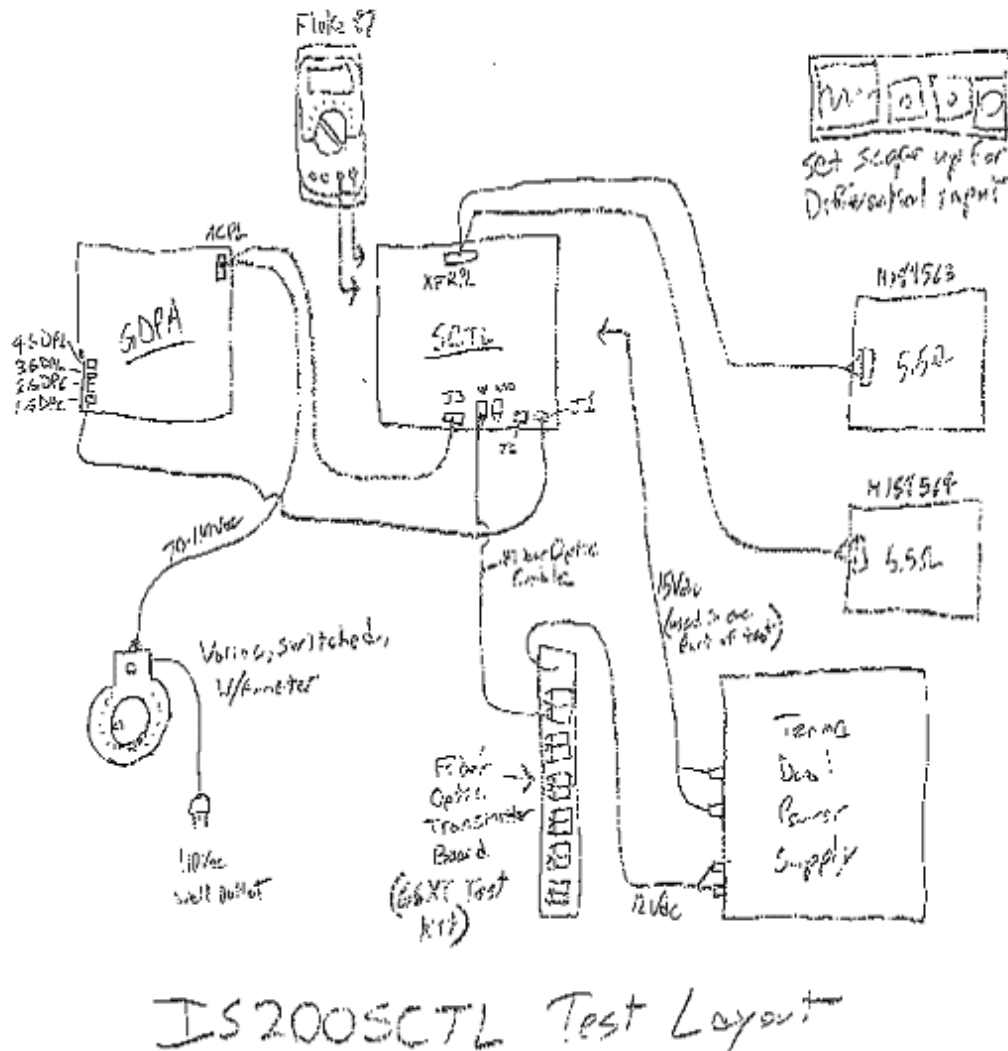 Fluke 87
Set Scope up for
Differential input
ACPL
GDPA
4GDPL
3GDPL
2GDPL
1GDPL
XFRPL
SCTL
J3
J1
5.5Ω
5.5Ω
Fiber Optic
15Vdc
(used in one
Part of test)
Variac, switched,
W/Ammeter
110Vac
wall outlet
Fiber
Optic
Transmitter
Board
(GGXI Test
Kit)
12Vdc
Dual
Power
Supply
IS200SCTL Test Layout